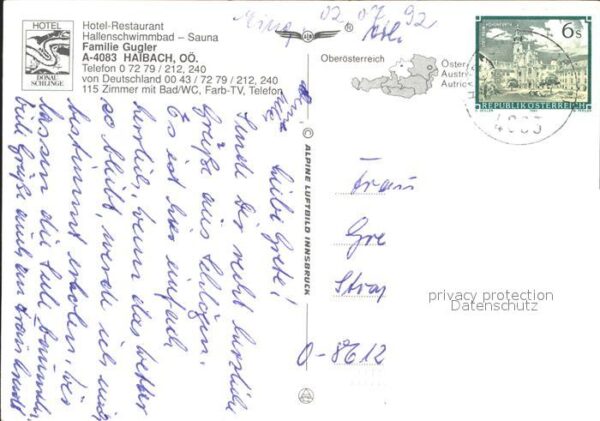 HOTEL
DONAU
SCHLINGE
Hotel-Restaurant
Hallenschwimmbad – Sauna
Familie Gugler
A-4083 HAIBACH, OÖ.
Telefon 0 72 79 / 212, 240
von Deutschland 00 43 / 72 79 / 212, 240
115 Zimmer mit Bad/WC, Farb-TV, Telefon
02 07 92
Oberösterreich
Österr
Austri
Autric
6 S
REPUBLIK ÖSTERREICH
4083
© ALPINE LUFTBILD INNSBRUCK
Liebe Grete!
Sende Dir recht herzliche
Grüße aus Schlögen.
Es ist hier einfach
herrlich, wenn das Wetter
so bleibt, werde ich mich
bestimmt erholen, wir
lassen die Seele baumeln.
Viele Grüße auch an
Frau
Gre
Stra
O-8612
privacy protection
Datenschutz